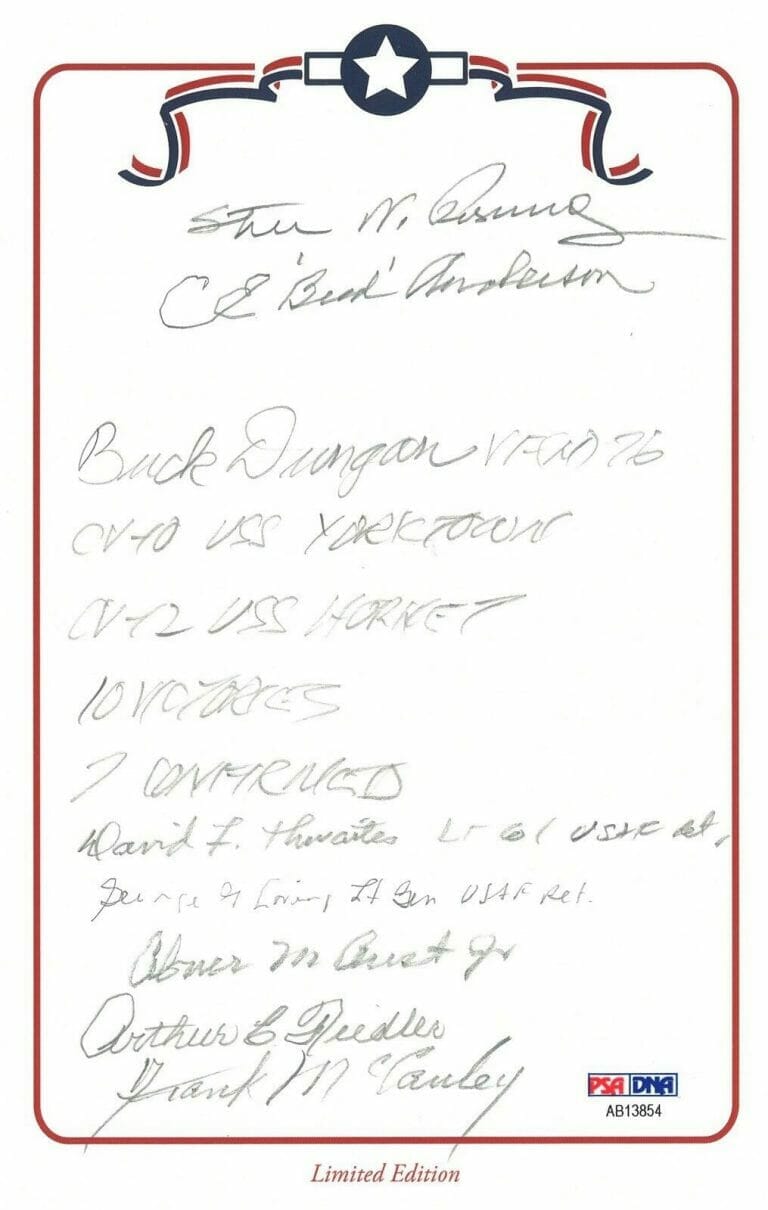 Steve N. Pisanos
CE 'Bud' Anderson
Buck Dungan VF(N) 76
CV-10 USS YORKTOWN
CV-12 USS HORNET
10 VICTORIES
7 CONFIRMED
David F. Thwaites Lt Col USAF Ret.
George G Loving Lt Gen USAF Ret.
Abner M Aust Jr
Arthur C Fiedler
Frank McCauley
PSA DNA
AB13854
Limited Edition